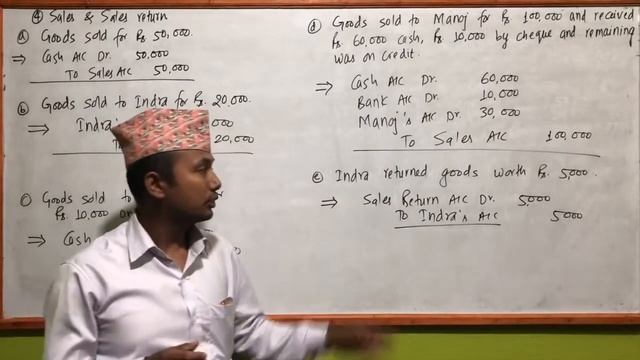 ④ Sales & Sales return
ⓐ Goods sold for Rs 50,000.
⇒ Cash A/c Dr. 50,000
To Sales A/c 50,000
ⓑ Goods sold to Indra for Rs. 20,000.
⇒ Indra 000
20,000
Goods sold to
Rs. 10,000
⇒ Cash
ⓓ Goods sold to Manoj for Rs 100,000 and received
Rs. 60,000 cash, Rs 10,000 by cheque and remaining
was on Credit.
⇒ Cash A/c Dr. 60,000
Bank A/c Dr. 10,000
Manoj's A/c Dr. 30,000
To Sales A/c 100,000
ⓔ Indra returned goods worth Rs. 5,000.
⇒ Sales Return A/c Dr. 5,000
To Indra's A/c 5000